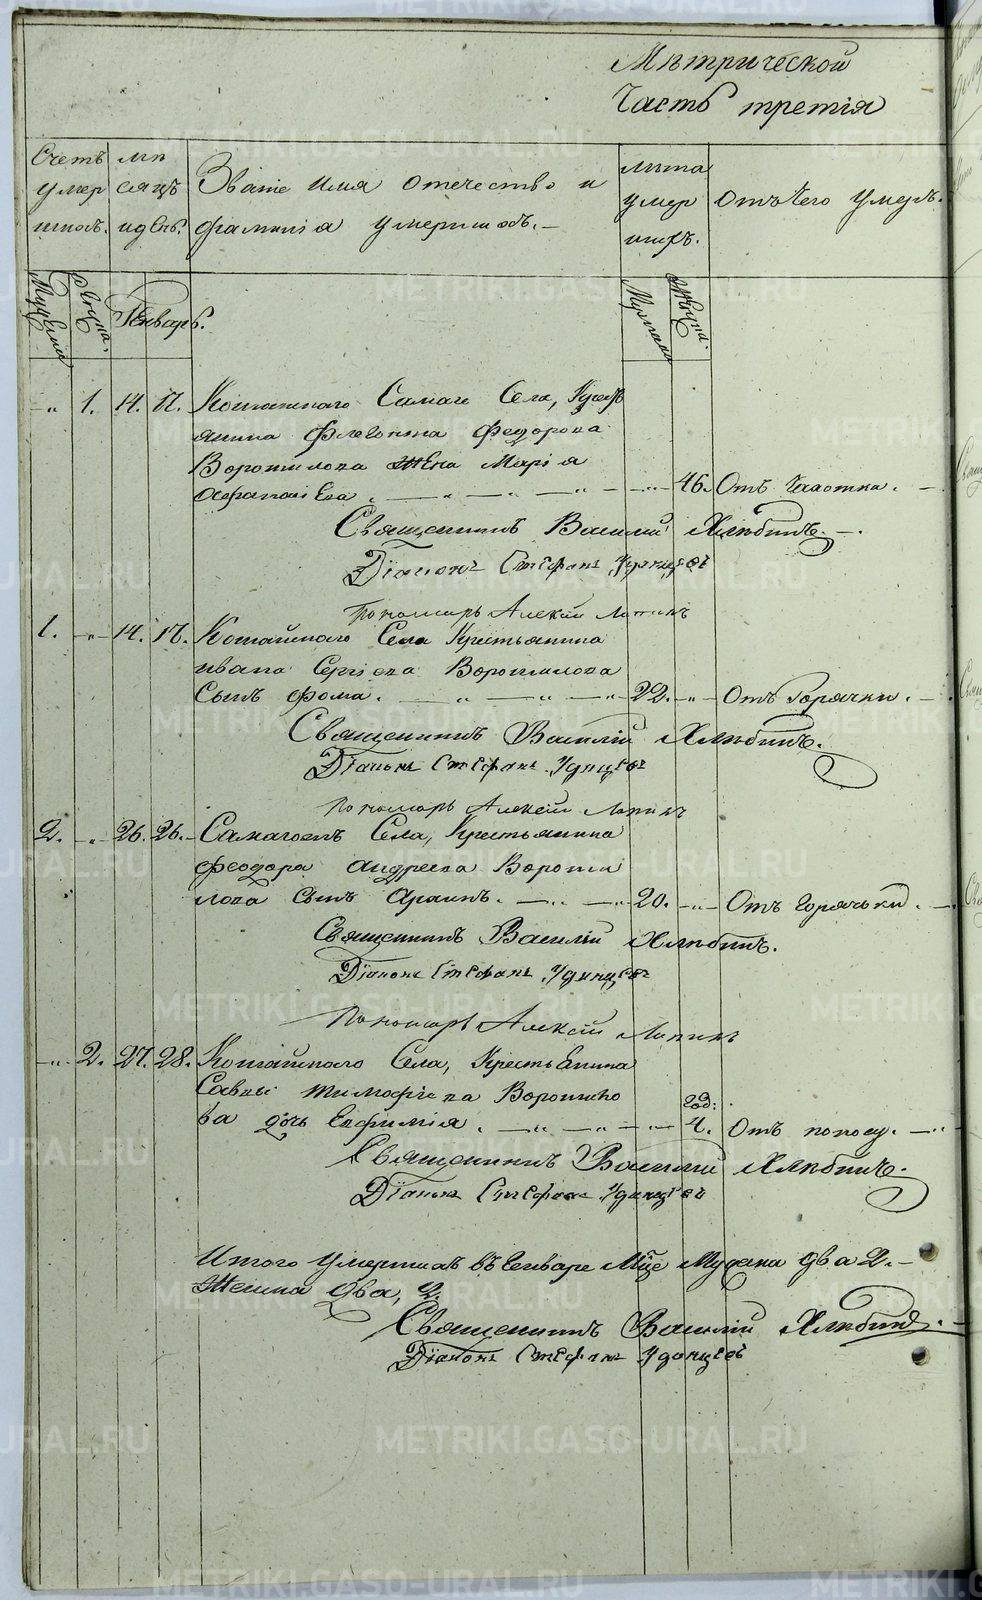 Метрической
Часть третія
Счетъ умершихъ.
Мѣсяцъ и день.
Званіе имя отечество и
фамилія умершихъ. —
лѣта умершихъ.
Отъ чего умеръ.
Мужеска
женска.
Генварь.
Мужеска
женска.
— " 1. 14. 17. Села, Кресть
янина Флегонта Федорова
Ворошилова жена Марія
46. Отъ чахотки. —
Священникъ Василій Хлѣбинъ. —
Діаконъ Стефанъ Удинцовъ
Пономарь Алексій Лапинъ
1. " 14. 17. Села Крестьянина
Ивана Сергіева Ворошилова
Сынъ Фома. — " — " — 22. — " — Отъ горячки. —
Священникъ Василій Хлѣбинъ.
Діаконъ Стефанъ Удинцовъ
Пономарь Алексій Лапинъ
2. " 26. 26. Села, Крестьянина
Феодора Андреева Вороши
лова сынъ — " — " 20. — " — Отъ горячьки. —
Священникъ Василій Хлѣбинъ.
Діаконъ Стефанъ Удинцовъ
Пономарь Алексій Лапинъ
— " 2. 27. 28. Села, Крестьянина
Савы Тимофіева Ворошило
год:
ва дочь Евфимія. — " — " — 4. Отъ поносу. — "
Священникъ Василій Хлѣбинъ.
Діаконъ Стефанъ Удинцовъ
Итого умершихъ въ Генваре Мце Мужска два 2. —
Женска два, 2.
Священникъ Василій Хлѣбинъ. —
Діаконъ Стефанъ Удинцовъ
METRIKI.GASO-URAL.RU